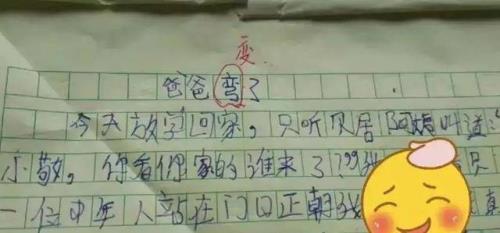 变
爸爸弯了
今天放学回家，只听贝居阿姨叫道：“
小敬，你看你家的谁来了???
一位中年人站在门口正朝我